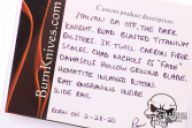 BurnKnives.com
Custom product description:
ITALIAN DA OTF, THE DARK
KNIGHT. BOMB BLASTED TITANIUM
BOLSTERS. 2X TWILL CARBON FIBER
SCALES. CHAD NICHOLS SS "FADE"
DAMASCUS HOLLOW GROUND BLADE.
HEMATITE INLAYED BUTTON.
BAT ENGRAVING INSIDE
SLIDE RAIL
BORN ON 2-28-20